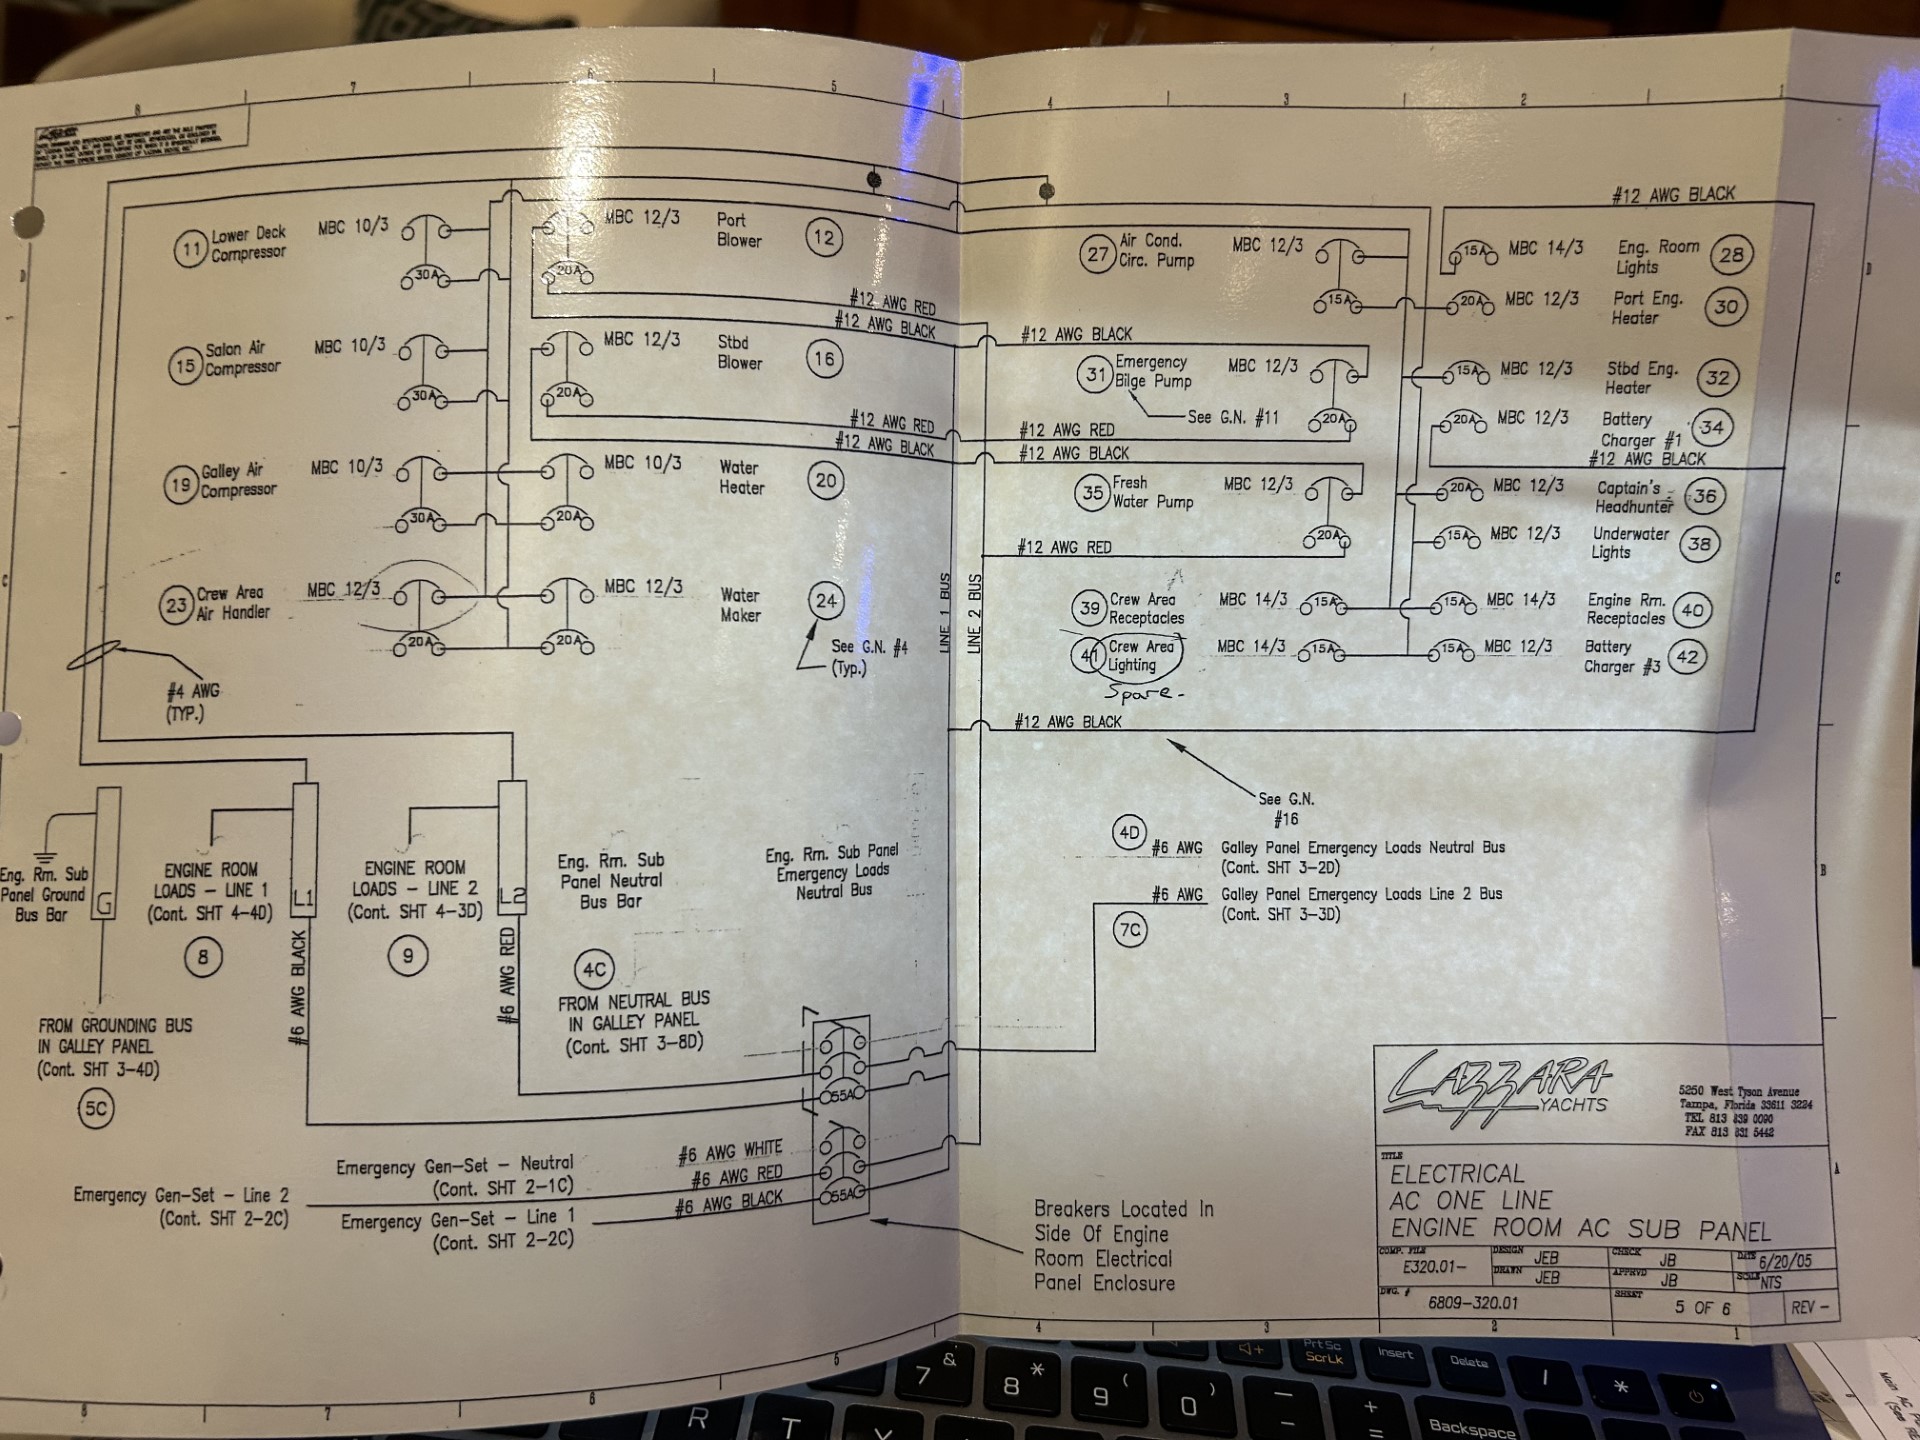 8
7
6
5
4
3
2
1
#12 AWG BLACK
11
Lower Deck
Compressor
MBC 10/3
30A
20A
MBC 12/3
Port
Blower
12
27
Air Cond.
Circ. Pump
MBC 12/3
15A
15A
MBC 14/3
Eng. Room
Lights
28
20A
MBC 12/3
Port Eng.
Heater
30
#12 AWG RED
#12 AWG BLACK
#12 AWG BLACK
15
Salon Air
Compressor
MBC 10/3
30A
20A
MBC 12/3
Stbd
Blower
16
31
Emergency
Bilge Pump
MBC 12/3
20A
See G.N. #11
15A
MBC 12/3
Stbd Eng.
Heater
32
20A
MBC 12/3
Battery
Charger #1
34
#12 AWG RED
#12 AWG BLACK
#12 AWG RED
#12 AWG BLACK
#12 AWG BLACK
19
Galley Air
Compressor
MBC 10/3
30A
20A
MBC 10/3
Water
Heater
20
35
Fresh
Water Pump
MBC 12/3
20A
20A
MBC 12/3
Captain's
Headhunter
36
15A
MBC 12/3
Underwater
Lights
38
#12 AWG RED
23
Crew Area
Air Handler
MBC 12/3
20A
20A
MBC 12/3
Water
Maker
24
See G.N. #4
(Typ.)
LINE 1 BUS
LINE 2 BUS
39
Crew Area
Receptacles
MBC 14/3
15A
15A
MBC 14/3
Engine Rm.
Receptacles
40
41
Crew Area
Lighting
Spare-
MBC 14/3
15A
15A
MBC 12/3
Battery
Charger #3
42
#12 AWG BLACK
See G.N.
#16
#4 AWG
(TYP.)
Eng. Rm. Sub
Panel Ground
Bus Bar
G
ENGINE ROOM
LOADS - LINE 1
(Cont. SHT 4-4D)
8
L1
ENGINE ROOM
LOADS - LINE 2
(Cont. SHT 4-3D)
9
L2
Eng. Rm. Sub
Panel Neutral
Bus Bar
4C
FROM NEUTRAL BUS
IN GALLEY PANEL
(Cont. SHT 3-8D)
Eng. Rm. Sub Panel
Emergency Loads
Neutral Bus
4D
#6 AWG
Galley Panel Emergency Loads Neutral Bus
(Cont. SHT 3-2D)
#6 AWG
Galley Panel Emergency Loads Line 2 Bus
(Cont. SHT 3-3D)
7C
#6 AWG BLACK
#6 AWG RED
FROM GROUNDING BUS
IN GALLEY PANEL
(Cont. SHT 3-4D)
5C
55A
55A
Emergency Gen-Set - Neutral
(Cont. SHT 2-1C)
#6 AWG WHITE
Emergency Gen-Set - Line 2
(Cont. SHT 2-2C)
#6 AWG RED
Emergency Gen-Set - Line 1
(Cont. SHT 2-2C)
#6 AWG BLACK
Breakers Located In
Side Of Engine
Room Electrical
Panel Enclosure
LAZZARA
YACHTS
5250 West Tyson Avenue
Tampa, Florida 33611 3224
TEL 813 839 0090
FAX 813 831 5442
TITLE
ELECTRICAL
AC ONE LINE
ENGINE ROOM AC SUB PANEL
COMP. FILE
E320.01-
DESIGN
JEB
CHECK
JB
DATE
6/20/05
DRAWN
JEB
APPRVD
JB
SCALE
NTS
DWG. #
6809-320.01
SHEET
5 OF 6
REV -
D
C
D
C
B
A
8
7
6
5
4
3
2
1
7
&
8
*
9
(
0
)
-
+
=
PrtSc
ScrLk
Insert
Delete
/
*
Backspace
R
T